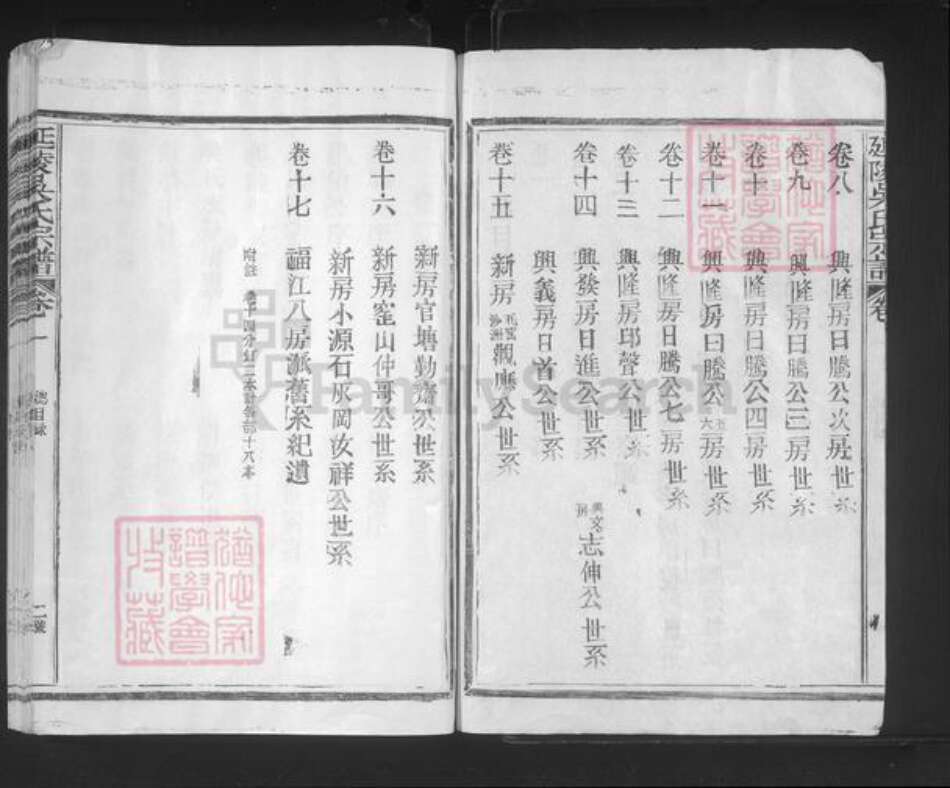 延陵吳氏宗譜 卷
卷八 興隆房日騰公次房世系
卷九 興隆房日騰公三房世系
卷十 興隆房日騰公四房世系
卷十一 興隆房日騰公五六房世系
卷十二 興隆房日騰公七房世系
卷十三 興隆房邱聲公世系
卷十四 興發房日進公世系 興文房志伸公世系
興義房日首公世系
卷十五 新房觀應公世系
新房官塘勤齋公世系
卷十六 新房窑山仲哥公世系
新房小源石灰岡汝祥公世系
卷十七 福江八房派舊系紀遺
附註 卷十四分訂二本計全部十八本
延陵吳氏宗譜 卷一 總目錄 二號
譜學會
收藏
FamilySearch